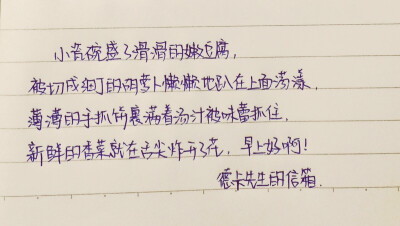 小瓷碗盛了滑滑的嫩豆腐,
被切成细丁的胡萝卜懒懒地趴在上面荡漾,
薄薄的手抓饼裹满着汤汁被味蕾抓住,
新鲜的香菜就在舌尖炸开了花,早上好啊!
德卡先生的信箱.